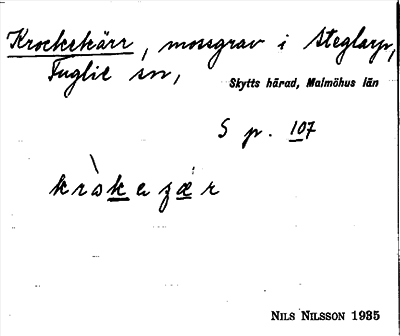 Krockekärr, mossgrav i Steglarp,
Fuglie sn,
Skytts härad, Malmöhus län
S p. 107
kròkezær
NILS NILSSON 1935